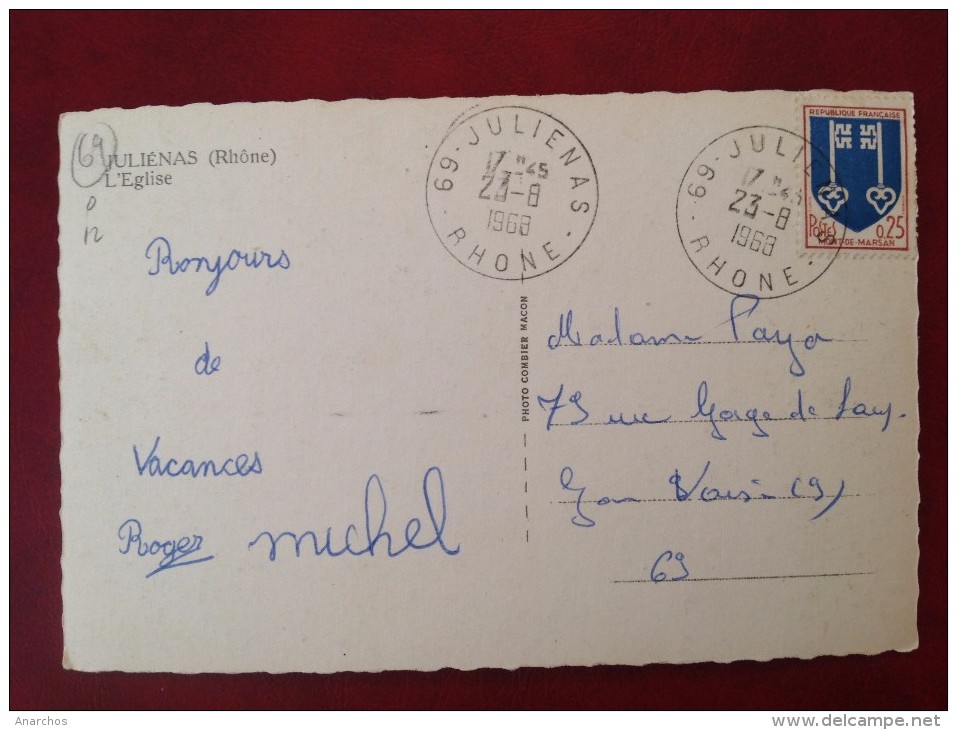 69
JULIÉNAS (Rhône)
L'Eglise
0
12
Bonjours
de
Vacances
Roger michel
69 - JULIENAS
17 H 45
23-8
1968
RHONE
PHOTO COMBIER MACON
69 - JULIE
17 H 45
23-8
1968
RHONE
REPUBLIQUE FRANÇAISE
POSTES 0,25
MONT-DE-MARSAN
Madame
79 rue de
Lyon (9)
69
Anarchos
delcampe.net